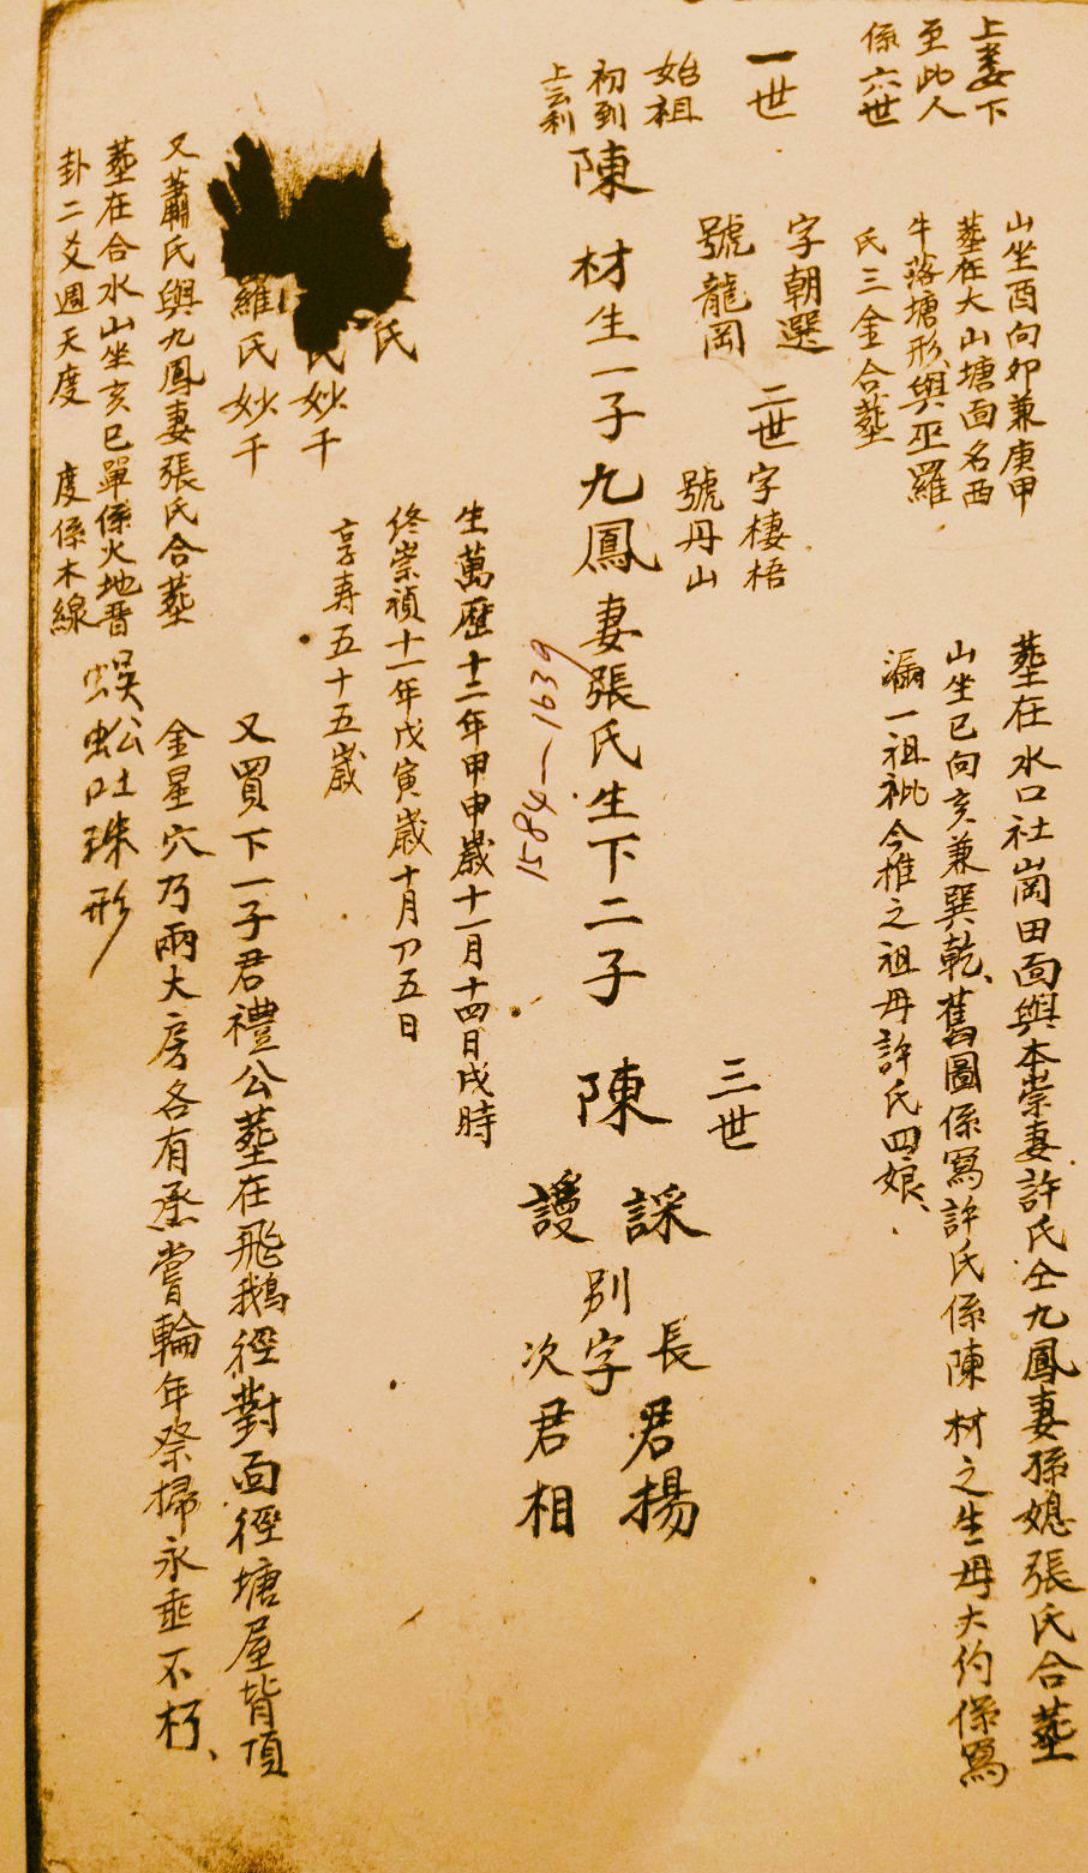 上葬下
至此人
係六世
山坐酉向卯兼庚甲
葬在大山塘面名西
牛落塘形與巫羅
氏三金合葬
葬在水口社崗田面與本崇妻許氏仝九鳳妻孫媳張氏合葬
山坐巳向亥兼巽乾、舊圖係寫許氏係陳材之生母大約係寫
漏一祖妣今推之祖母許氏四娘、
一世
始祖
初到
上云利
字朝選
號龍岡
二世
字棲梧
號丹山
三世
陳材生一子九鳳妻張氏生下二子陳
謀
謾
別字
長君揚
次君相
1584—1639
生萬歷十二年甲申歲十一月十四日戌時
終崇禎十一年戊寅歲十月初五日
享寿五十五歲
氏
氏妙千
羅氏妙千
又買下一子君禮公葬在飛鵝徑對面徑塘屋背頂
又蕭氏與九鳳妻張氏合葬
金星穴乃兩大房各有烝嘗輪年祭掃永垂不朽、
葬在合水山坐亥巳單係火地晋
卦二爻週天度 度係木線
蜈蚣吐珠形